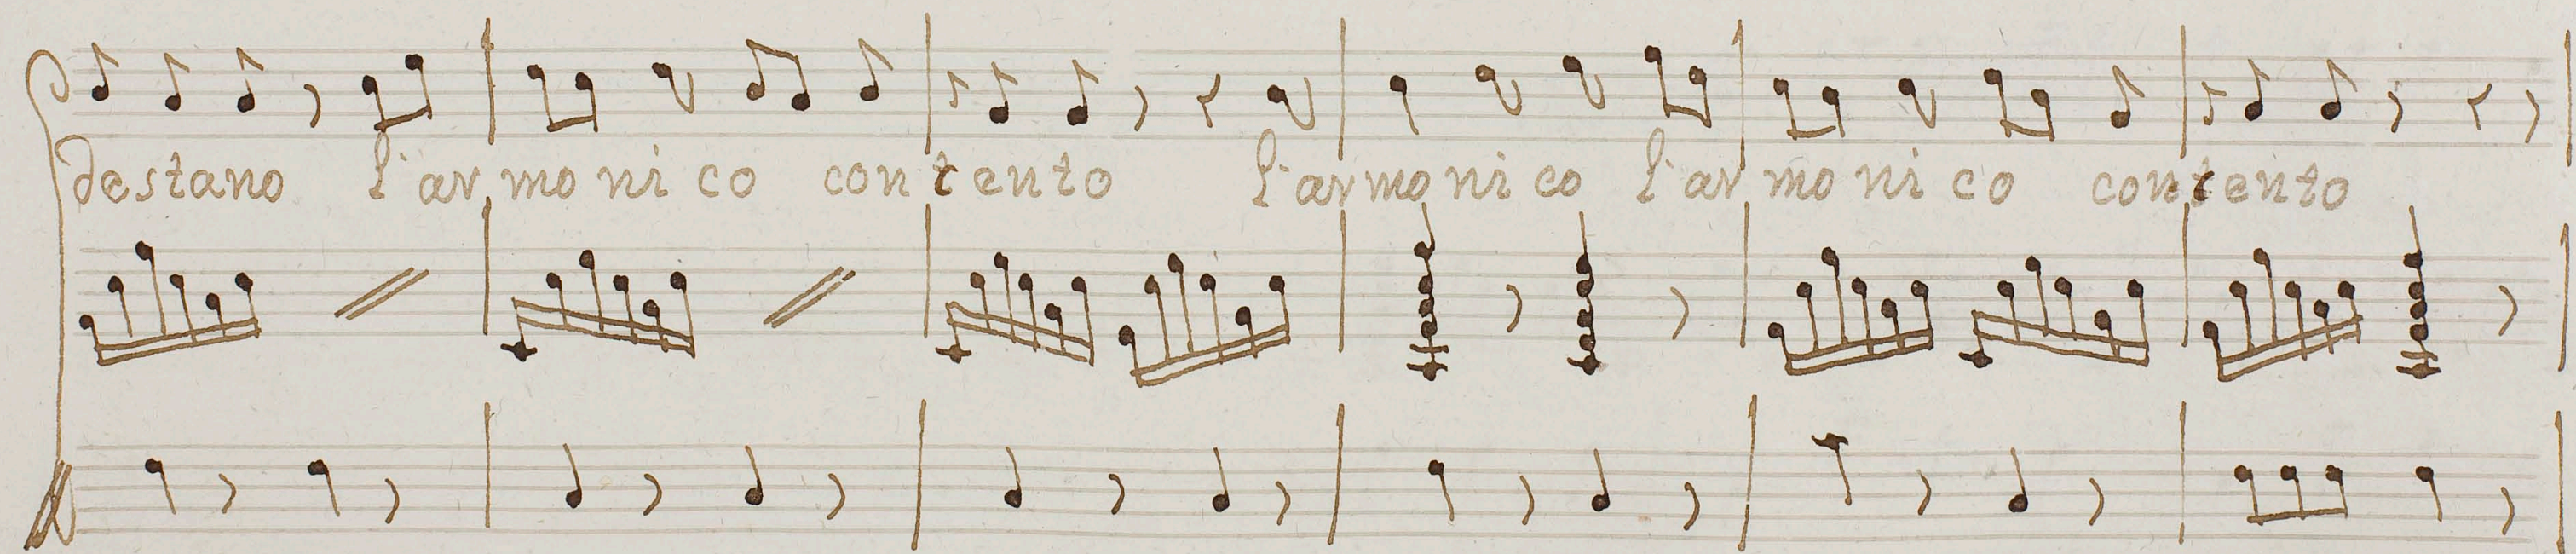 destano l'armonico contento l'armonico l'armonico contento